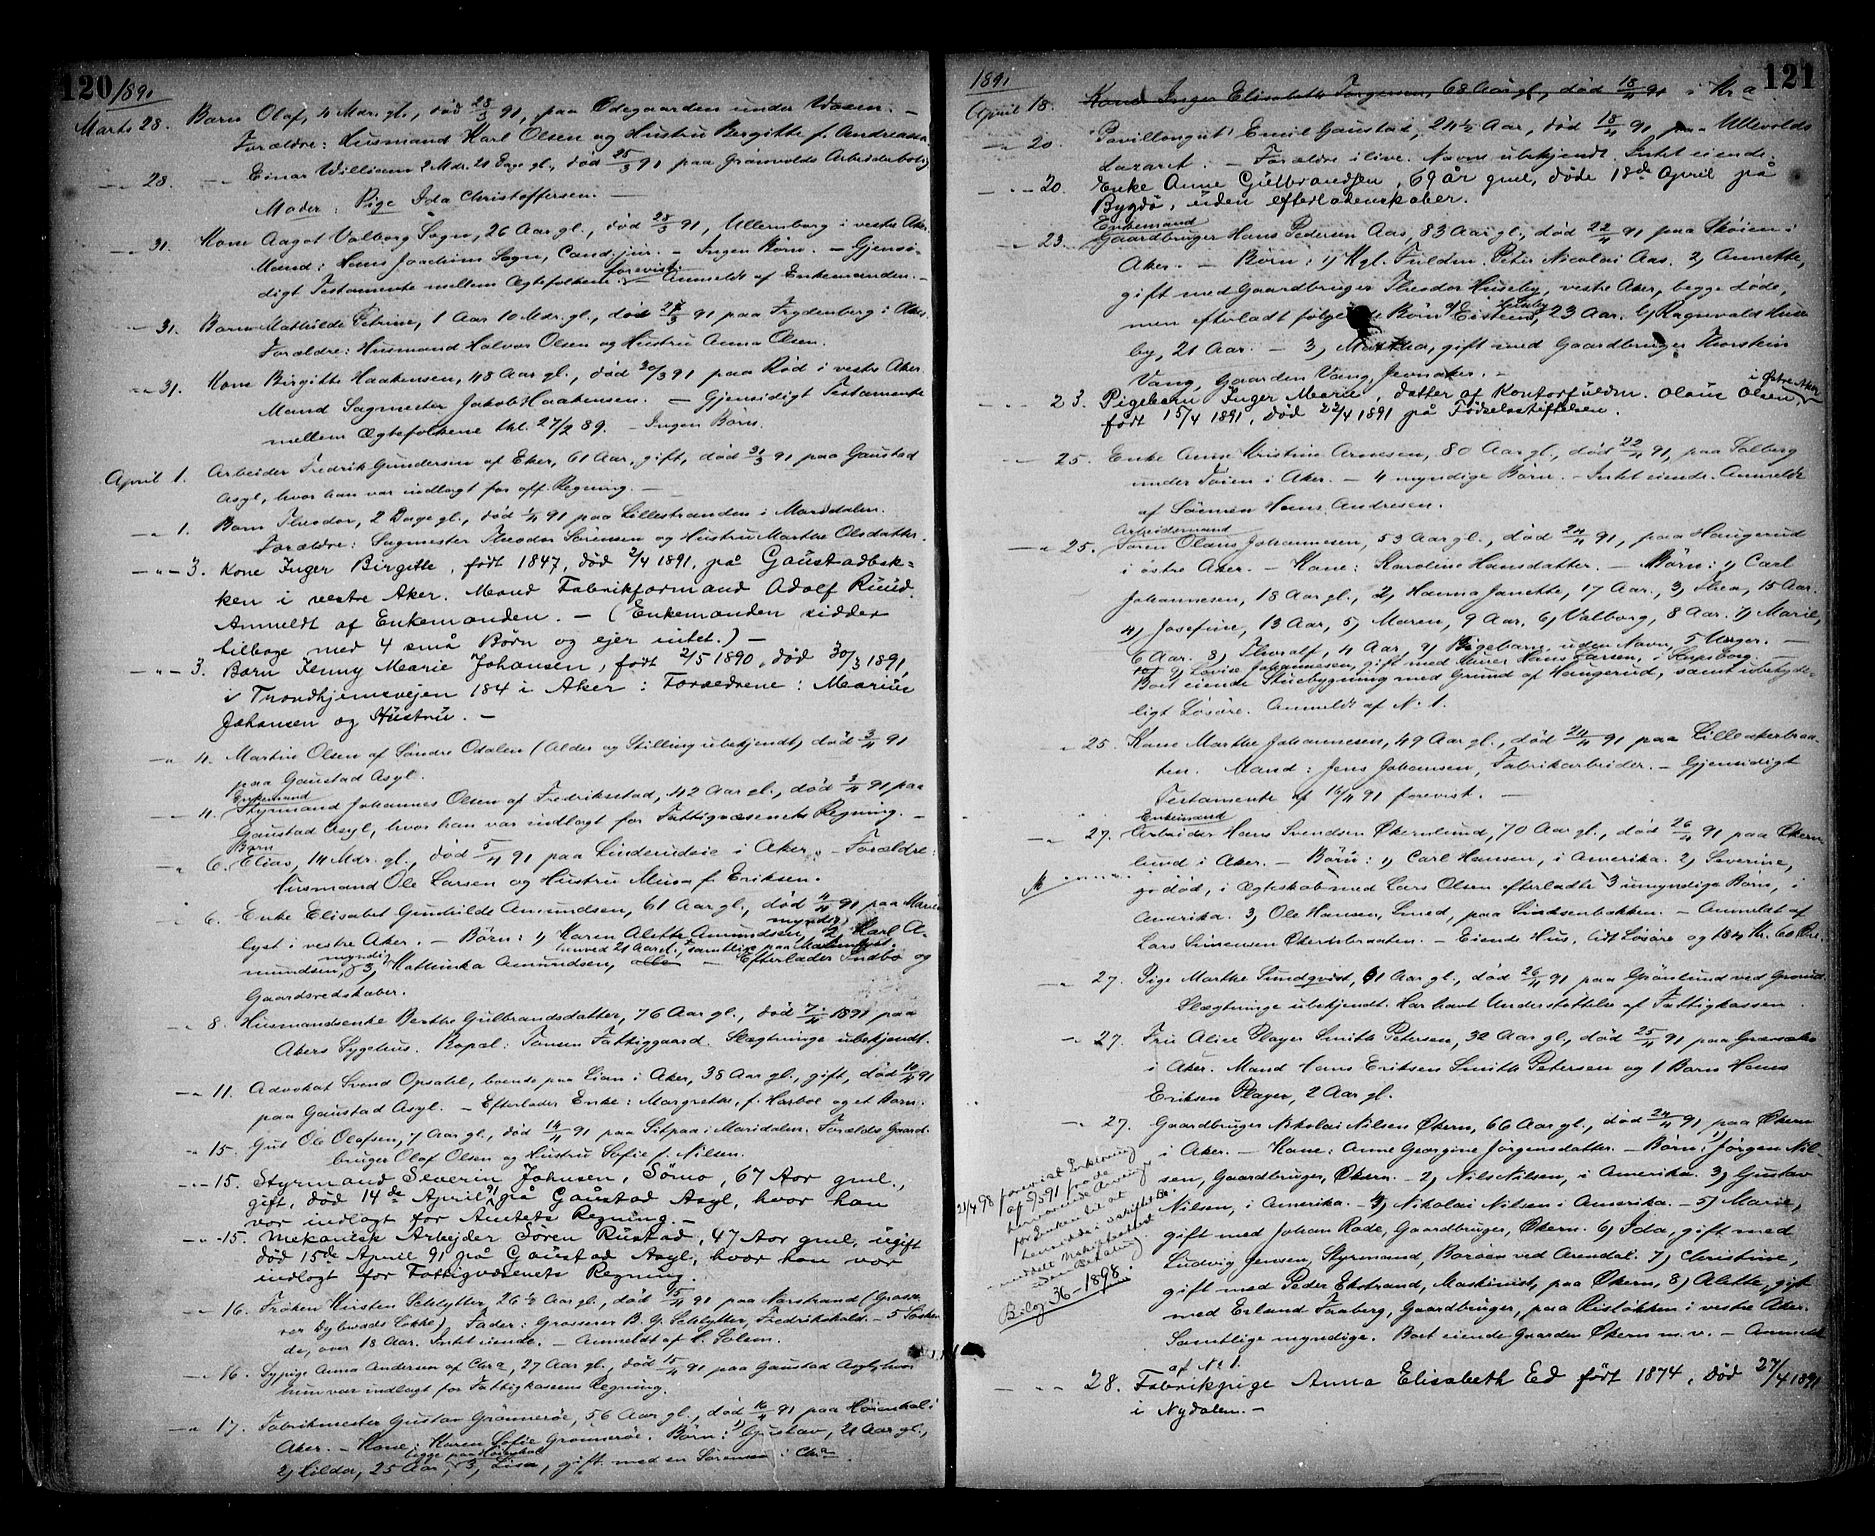 120/891
Marts 28. Barn Olaf, 4 Mdr. gl., død 28/3 91, paa Ødegaarden under Vøien. –
Forældre: Husmand Karl Olsen og Hustru Bergitte f. Andreasdr.
– „ – 28. – „ – Einar William 2 Mdr. 21 Dage gl., død 25/3 91 paa Grønvolds Arbeiderbolig
Moder: Pige Ida Christoffersen. –
– „ – 31. Kone Aagot Valborg Sogn, 26 Aar gl., død 28/3 91, Ullernborg i vestre Aker.
Mand: Hans Joachim Sogn, Cand. jur. – Ingen Børn. – Gjensi-
digt Testamente mellem Ægtefolkene forevist. – Anmeldt af Enkemanden. –
– „ – 31. Barn Mathilde Petrine, 1 Aar 10 Mdr. gl., død 28/3 91 paa Frydenberg i Aker.
Forældre: Husmand Halvor Olsen og Hustru Anna Olsen.
– „ – 31. Kone Birgitte Haakensen, 48 Aar gl., død 30/3 91 paa Rød i vestre Aker.
Mand Sagmester Jakob Haakensen. – Gjensidigt Testamente
mellem Ægtefolkene thl. 27/2 89. – Ingen Børn.
April 1. Arbeider Fredrik Gundersen af Eker, 61 Aar, gift, død 31/3 91 paa Gaustad
Asyl, hvor han var indlagt for off. Regning. –
– „ 1. Barn Theodor, 2 Dage gl., død 1/4 91 paa Lillestranden i Maridalen.
Forældre: Sagmester Theodor Sørensen og Hustru Marthe Olsdatter.
– „ – 3. Kone Inger Birgitte, født 1847, død 2/4 1891, på Gaustadbæk-
ken i vestre Aker. Mand Fabrikformand Adolf Ruud.
Anmeldt af Enkemanden. – (Enkemanden sidder
tilbage med 4 små Børn og ejer intet.) –
– „ – 3. Barn Jenny Marie Johansen, født 2/5 1890, død 30/3 1891,
i Trondhjemsvejen 184 i Aker: Forældrene: Marius
Johansen og Hustru. –
– „ 4. Martin Olsen af Søndre Odalen (Alder og Stilling ubekjendt) død 3/4 91
paa Gaustad Asyl.
Enkemand
– „ – 4. Styrmand Johannes Olsen af Fredriksstad, 42 Aar gl., død 2/4 91 paa
Gaustad Asyl, hvor han var indlagt for Fattigvæsenets Regning. –
Barn
– „ 6. Elias, 14 Mdr. gl., død 5/4 91 paa Linderudseie i Aker. – Forældre:
Husmand Ole Larsen og Hustru f. Eriksen.
– „ 6. Enke Elisabet Gunhilde Amundsen, 61 Aar gl., død 4/4 91 paa Marien-
lyst i vestre Aker. – Børn: 1) Karen Alette Amundsen, myndig 2) Karl A-
mundsen, myndig 3) Kathinka Amundsen, under 21 Aar gl., samtlige paa Marienlyst. – Efterlader Indbo og
Gaardsredskaber.
– „ 8. Husmandsenke Berthe Gulbrandsdatter, 76 Aar gl., død 7/4 1891 paa
Akers Sygehus. Bopæl: Tonsen Fattiggaard. Slægtninge ubekjendt.
– „ 11. Advokat Svend Opsahl, boende paa Lian i Aker, 38 Aar gl., gift, død 10/4 91
paa Gaustad Asyl. – Efterlader Enke: Margrethe, f. Harboe og et Barn.
„ 15. Gut Ole Olafsen, 7 Aar gl., død 14/4 91 paa Sitpaa i Maridalen. Forældre Gaard-
bruger Olaf Olsen og Hustru Sofie f. Nilsen.
– „ – 15. Styrmand Severin Johnsen, Sømo, 67 Aar gml.,
gift, død 14de April 91 på Gaustad Asyl, hvor han
var indlagt for Amtets Regning. –
– „ – 15. Mekanisk Arbejder Søren Rustad, 47 Aar gml, ugift
død 15de April 91 på Gaustad Asyl, hvor han var
indlagt for Fattigvæsenets Regning.
– „ 16. Frøken Kirsten Schlytter, 26 ½ Aar gl., død 15/4 91 paa Norstrand (Grosse-
rer Dybwads Løkke), Fader: Grosserer B. G. Schlytter, Fredrikshald. – 5 Søsken-
de, over 18 Aar. Intet eiende. – Anmeldt af L. Solem.
– „ 16. Sypige Anna Andersen af Chra, 27 Aar gl., død 15/4 91 paa Gaustad Asyl, hvor
hun var indlagt for Fattigkassens Regning.
– „ 17. Fabrikmester Gustav Grønnerøe, 56 Aar gl., død 16/4 91 paa Høienhal i
Aker. – Kone: Karen Sofie Grønnerøe. Børn: 1) Gustav, 21 Aar gl.,
2) Hilda, 25 Aar, begge paa Høienhal 3) Lisa, gift med en Sørensen i Chra.
121
1891
April 18. Kone Inger Elisabeth Jørgensen, 68 Aar gl., død 18/4 91 i Kra
– „ 20. "Pavillongut" Emil Gaustad, 24 ½ Aar, død 18/4 91, paa Ullevolds
Lazaret. – Forældre ilive. Navne ubekjendt. Intet eiende.
– „ – 20. Enke Anne Gulbrandsen, 69 år gml, døde 18de April på
Bygdø, uden efterladenskaber.
Enkemand
– „ 23. Gaardbruger Hans Pedersen Aas, 83 Aar gl., død 22/4 91 paa Skøien i
Aker. – Børn: 1) Kgl. Fuldm. Peter Nicolai Aas. 2) Annette,
gift med Gaardbruger Theodor Huseby, vestre Aker, begge døde,
men efterladt følgende Børn a) Eistein Huseby, 23 Aar. b) Ragnvald Huse-
by, 21 Aar. – 3) Marthea, gift med Gaardbruger Thorstein
Vang, Gaarden Vang, Jevnaker. –
– „ – 23. Pigebarn Inger Marie, datter af Kontorfuldm. Olaus Olsen, i Østre Aker
født 15/4 1891, død 22/4 1891 på Fødselsstiftelsen.
– „ 25. Enke Anne Kristine Arnesen, 80 Aar gl., død 22/4 91, paa Solberg
under Tøien i Aker. – 4 myndige Børn. – Intet eiende. Anmeldt
af Sønnen Hans Andresen.
Arbeidsmand
– „ 25. Søren Olaus Johannesen, 53 Aar gl., død 24/4 91, paa Haugerud
i østre Aker. – Kone: Karoline Hansdatter. – Børn: 1) Carl
Johannesen, 18 Aar gl., 2) Hanna Janette, 17 Aar., 3) Thea, 15 Aar.
4) Josefine, 13 Aar, 5) Maren, 9 Aar, 6) Valborg, 8 Aar. 7) Marie,
6 Aar. 8) Thoralf, 4 Aar, 9) Pigebarn, uden Navn, 5 Uger. –
10) Lovise Johannesen, gift med Murer Hans Larsen, i Sarpsborg. –
Boet eiende Stuebygning med Grund af Haugerud, samt ubetyde-
ligt Løsøre. Anmeldt af No 1.
„ 25. Kone Marthe Johannesen, 49 Aar gl., død 24/4 91 paa Lilleakerbraa-
ten. Mand: Jens Johansen, Fabrikarbeider. – Gjensidigt
Testamente af 16/4 91 forevist. –
Enkemand
– „ 27. Arbeider Hans Svendsen Økernlund, 70 Aar gl., død 26/4 91 paa Økern-
lund i Aker. – Børn: 1) Carl Hansen, i Amerika. 2) Severine,
død, i Ægteskab med Lars Olsen efterladte 3 umyndige Børn, i
Amerika. 3) Ole Hansen, Smed, paa Lindsenbakken. – Anmeldt af
Lars Simensen Økernbraaten. – Eiende Hus, lidt Løsøre og 184 Kr. 60 Øre.
– „ 27. Pige Marthe Sundqvist, 61 Aar gl., død 26/4 91 paa Grønlund ved Grorud
Slægtninge ubekjendt. Har havt Understøttelse af Fattigkassen.
– „ 27. Fru Alice Player Smith Petersen, 32 Aar gl., død 25/4 91 paa Grævsaker
i Aker. Mand Hans Eriksen Smith Petersen og 1 Barn Hans
Eriksen Player, 2 Aar gl.
– „ 27. Gaardbruger Nikolai Nilsen Økern, 66 Aar gl., død 24/4 91, paa Økern
i Aker. – Kone: Anne Georgine Jørgensdatter. – Børn: 1) Jørgen Nil-
sen, Gaardbruger, Økern. – 2) Nils Nilsen, i Amerika. 3) Gustav
Nilsen, i Amerika. – 4) Nikolai Nilsen i Amerika. – 5) Marie,
gift med Johan Rode, Gaardbruger, Økern. 6) Ida, gift med
Ludvig Jensen, Styrmand, Barøen ved Arendal. 7) Christine,
gift med Peder Ekstrand, Maskinist, paa Økern, 8) Alette, gift
med Erland Faaberg, Gaardbruger, paa Ristøkken i vestre Aker.
Samtlige myndige. Boet eiende Gaarden Økern m. v. – Anmeldt
af No 1.
21/4 98 forevist Erklæring
af 7/5 91 fra de
for Enken til at
hensidde i uskiftet Bo
meddelt
uden Betaling.
Bilag 36 – 1898.
– „ – 28. Fabrikpige Anna Elisabeth Ed født 1874, død 27/4 1891
i Nydalen. –